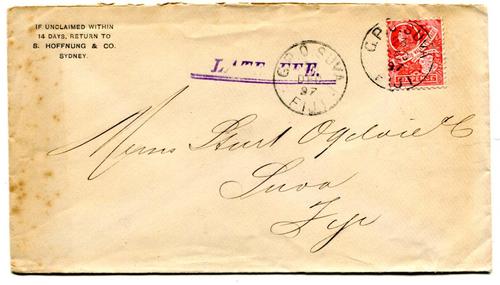 IF UNCLAIMED WITHIN
14 DAYS, RETURN TO
S. HOFFNUNG & CO.
SYDNEY.
LATE FEE.
G.P.O SUVA
DE
97
FIJI
G.P.
97
FIJI
Messrs Sturt Ogilvie & C
Suva
Fiji